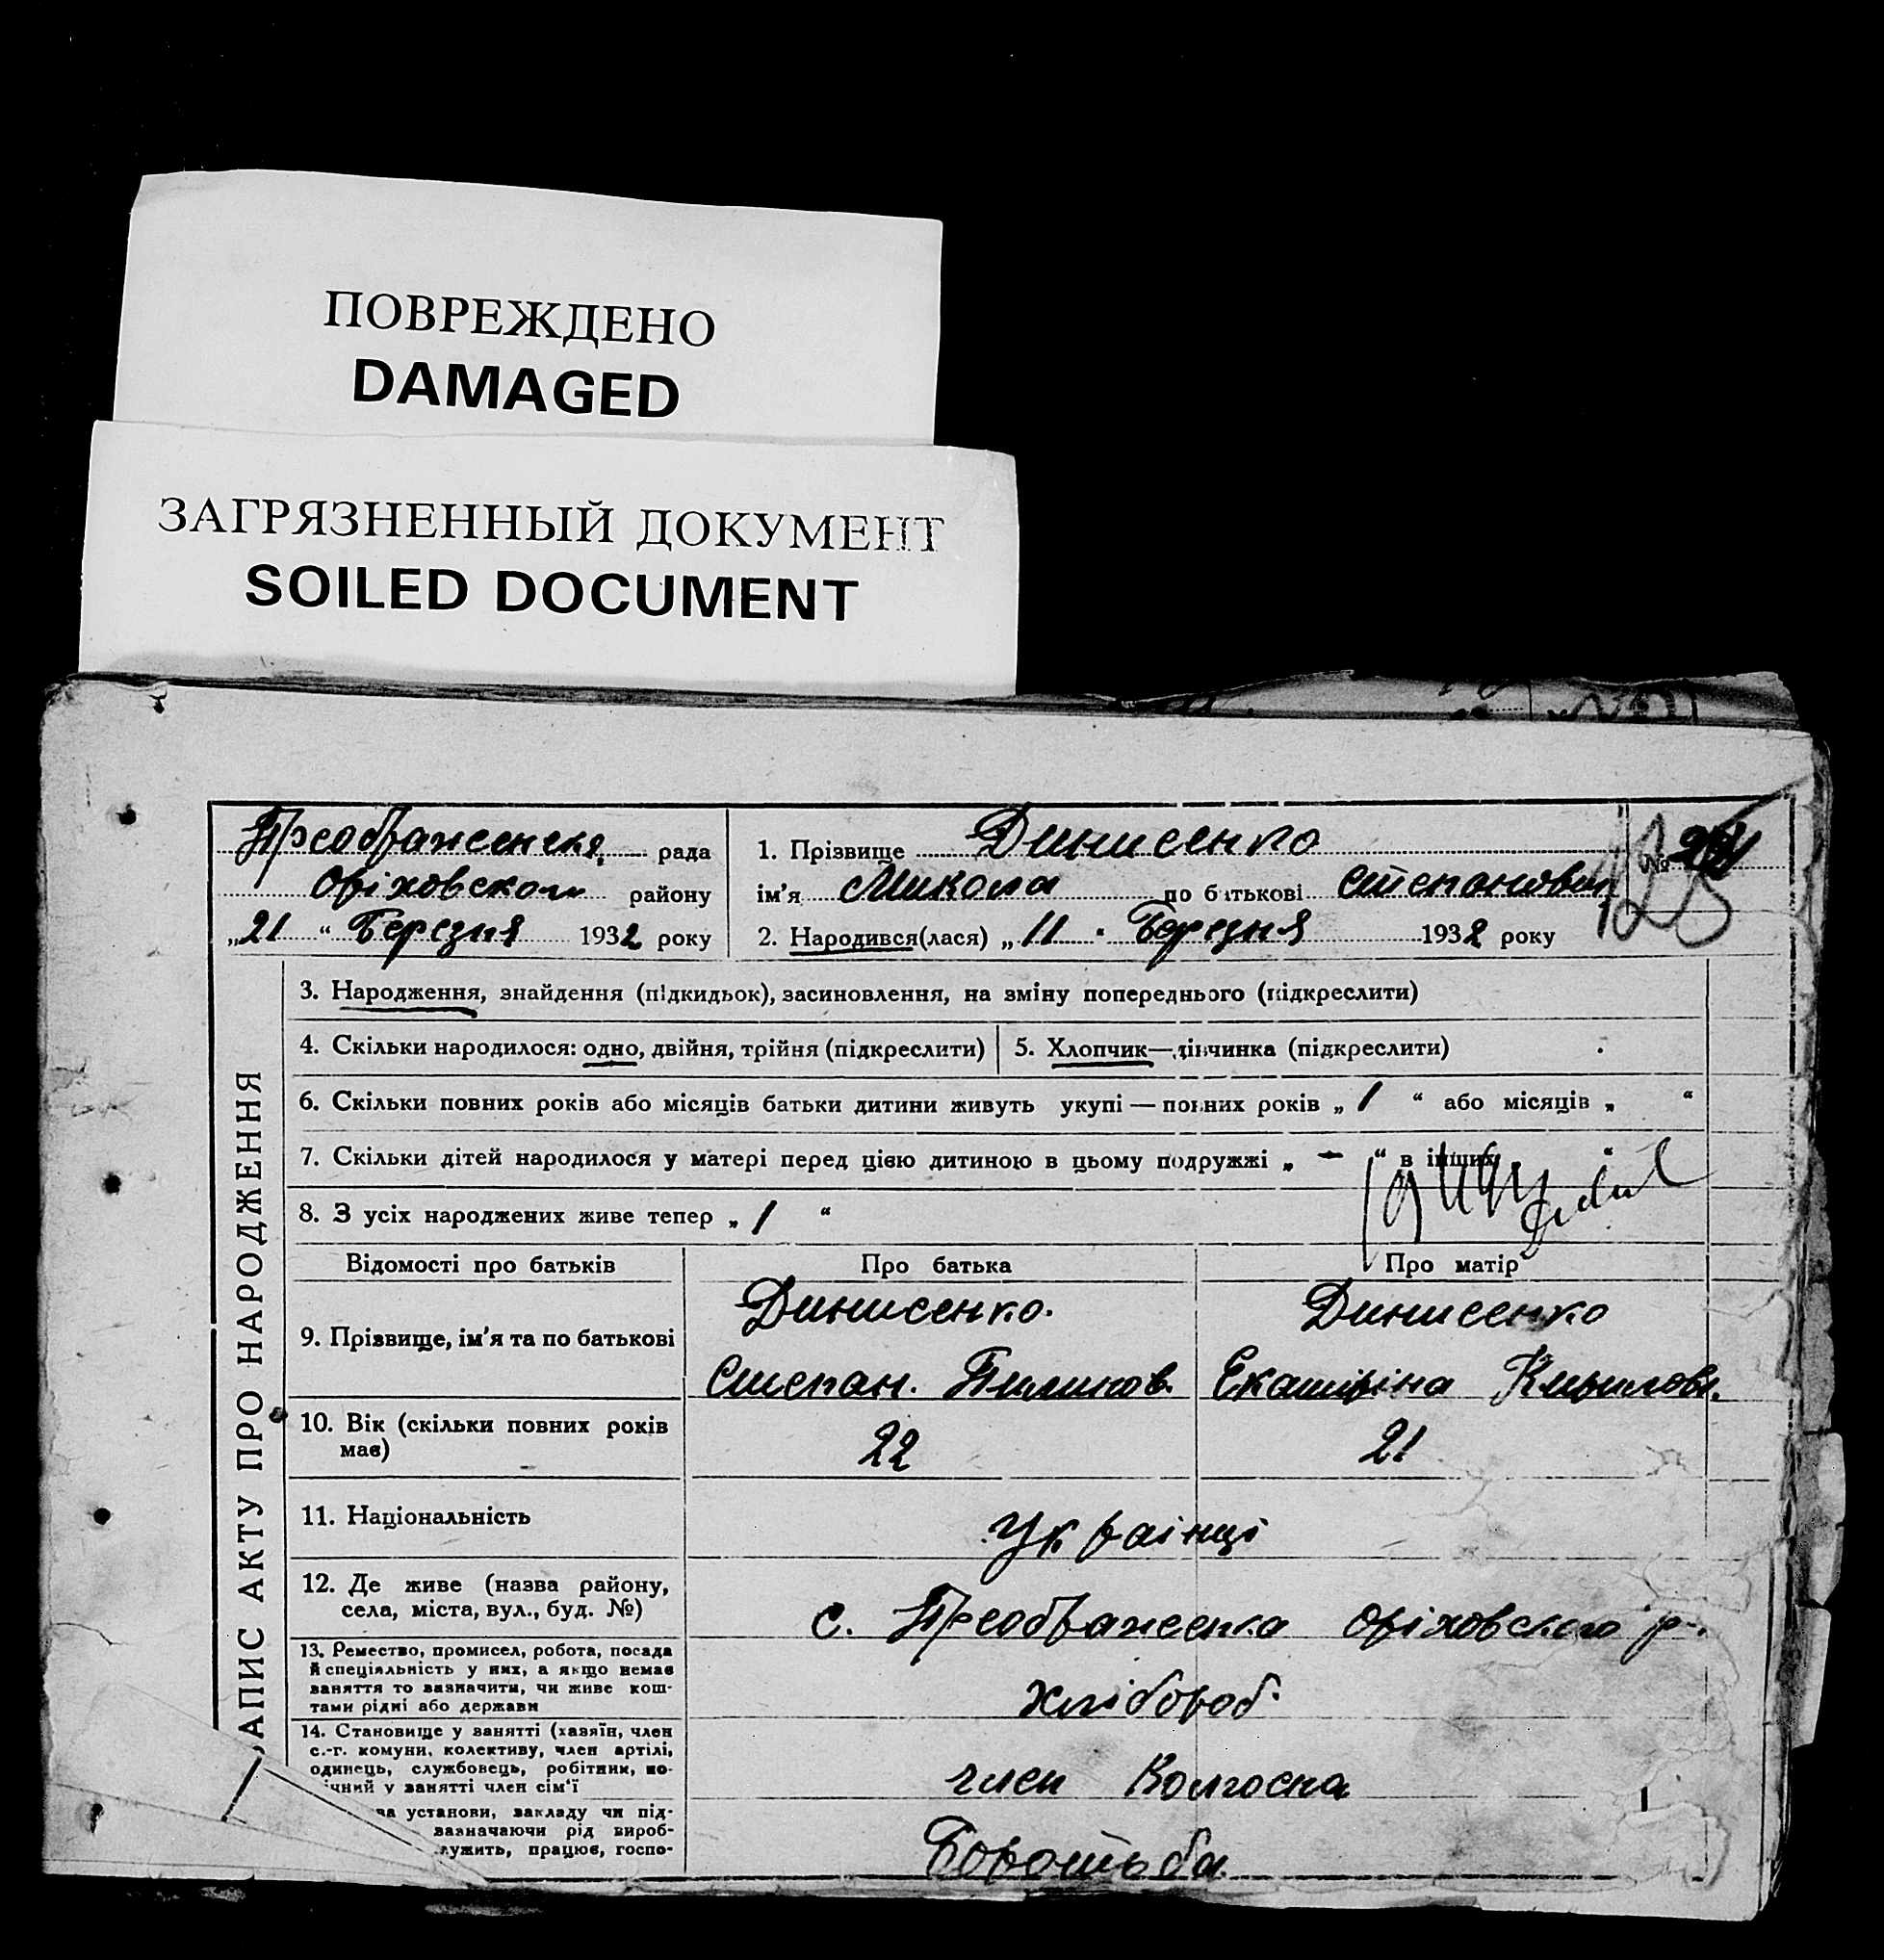 ПОВРЕЖДЕНО
DAMAGED
ЗАГРЯЗНЕННЫЙ ДОКУМЕНТ
SOILED DOCUMENT
Преображенська рада
Оріховського району
„21“ Березня 1932 року
1. Прізвище Динисенко
ім'я Микола по батькові Степанович
2. Народився(лася) „11" Березня 1932 року
№
123
ЗАПИС АКТУ ПРО НАРОДЖЕННЯ
3. Народження, знайдення (підкидьок), засиновлення, на зміну попереднього (підкреслити)
4. Скільки народилося: одно, двійня, трійня (підкреслити)
5. Хлопчик—дівчинка (підкреслити)
6. Скільки повних років або місяців батьки дитини живуть укупі — повних років „ 1 “ або місяців „ “
7. Скільки дітей народилося у матері перед цією дитиною в цьому подружжі „ - “ в інших „ “
8. З усіх народжених живе тепер „ 1 “
Відомості про батьків
Про батька
Про матір
9. Прізвище, ім'я та по батькові
Динисенко.
Степан. Пилипов.
Динисенко
Екатиріна Кирилов.
10. Вік (скільки повних років
має)
22
21
11. Національність
Українці
12. Де живе (назва району,
села, міста, вул., буд. №)
с. Преображенка Оріховского р-.
13. Ремество, промисел, робота, посада
й спеціяльність у них, а якщо немає
заняття то зазначити, чи живе кош-
тами рідні або держави
хлібороб.
14. Становище у занятті (хазяїн, член
с.-г. комуни, колективу, член артілі,
одинець, службовець, робітник, по-
ічний у занятті член сім'ї
член Колгоспа
ва установи, закладу чи під-
зазначаючи рід вироб-
лужить, працює, госпо-
Боротьба